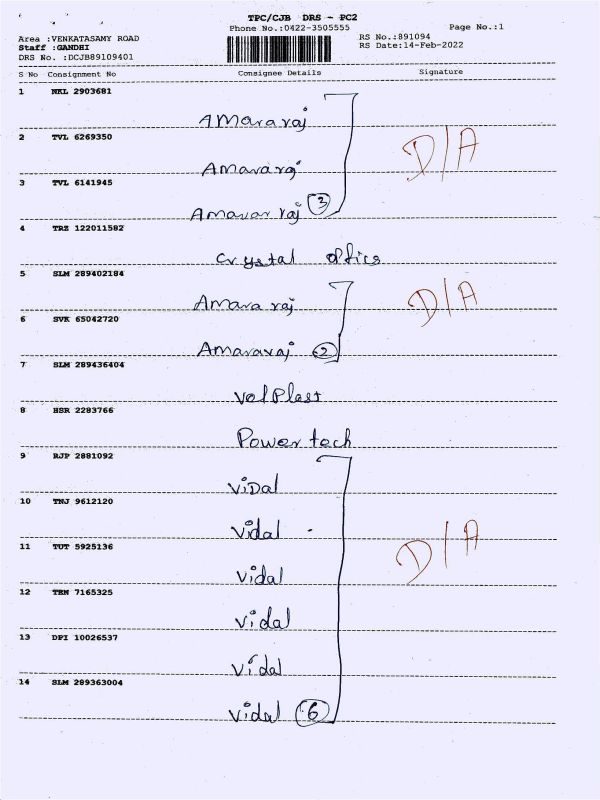 TPC/CJB DRS - PC2
Phone No.:0422-3505555
Page No.:1
Area :VENKATASAMY ROAD
RS No.:891094
Staff :GANDHI
RS Date:14-Feb-2022
DRS No. :DCJB89109401
S No Consignment No Consignee Details Signature
1 NKL 2903681
Amararaj
2 TVL 6269350
Amararaj
D/A
3 TVL 6141945
Amararaj 3
4 TRZ 122011582
Crystal Optics
5 SLM 289402184
Amararaj
D/A
6 SVK 65042720
Amararaj 2
7 SLM 289436404
Volplast
8 HSR 2283766
Power tech
9 RJP 2881092
ViDal
10 TNJ 9612120
Vidal
11 TUT 5925136
Vidal
D/A
12 TRN 7165325
Vidal
13 DPI 10026537
Vidal
14 SLM 289363004
Vidal 6